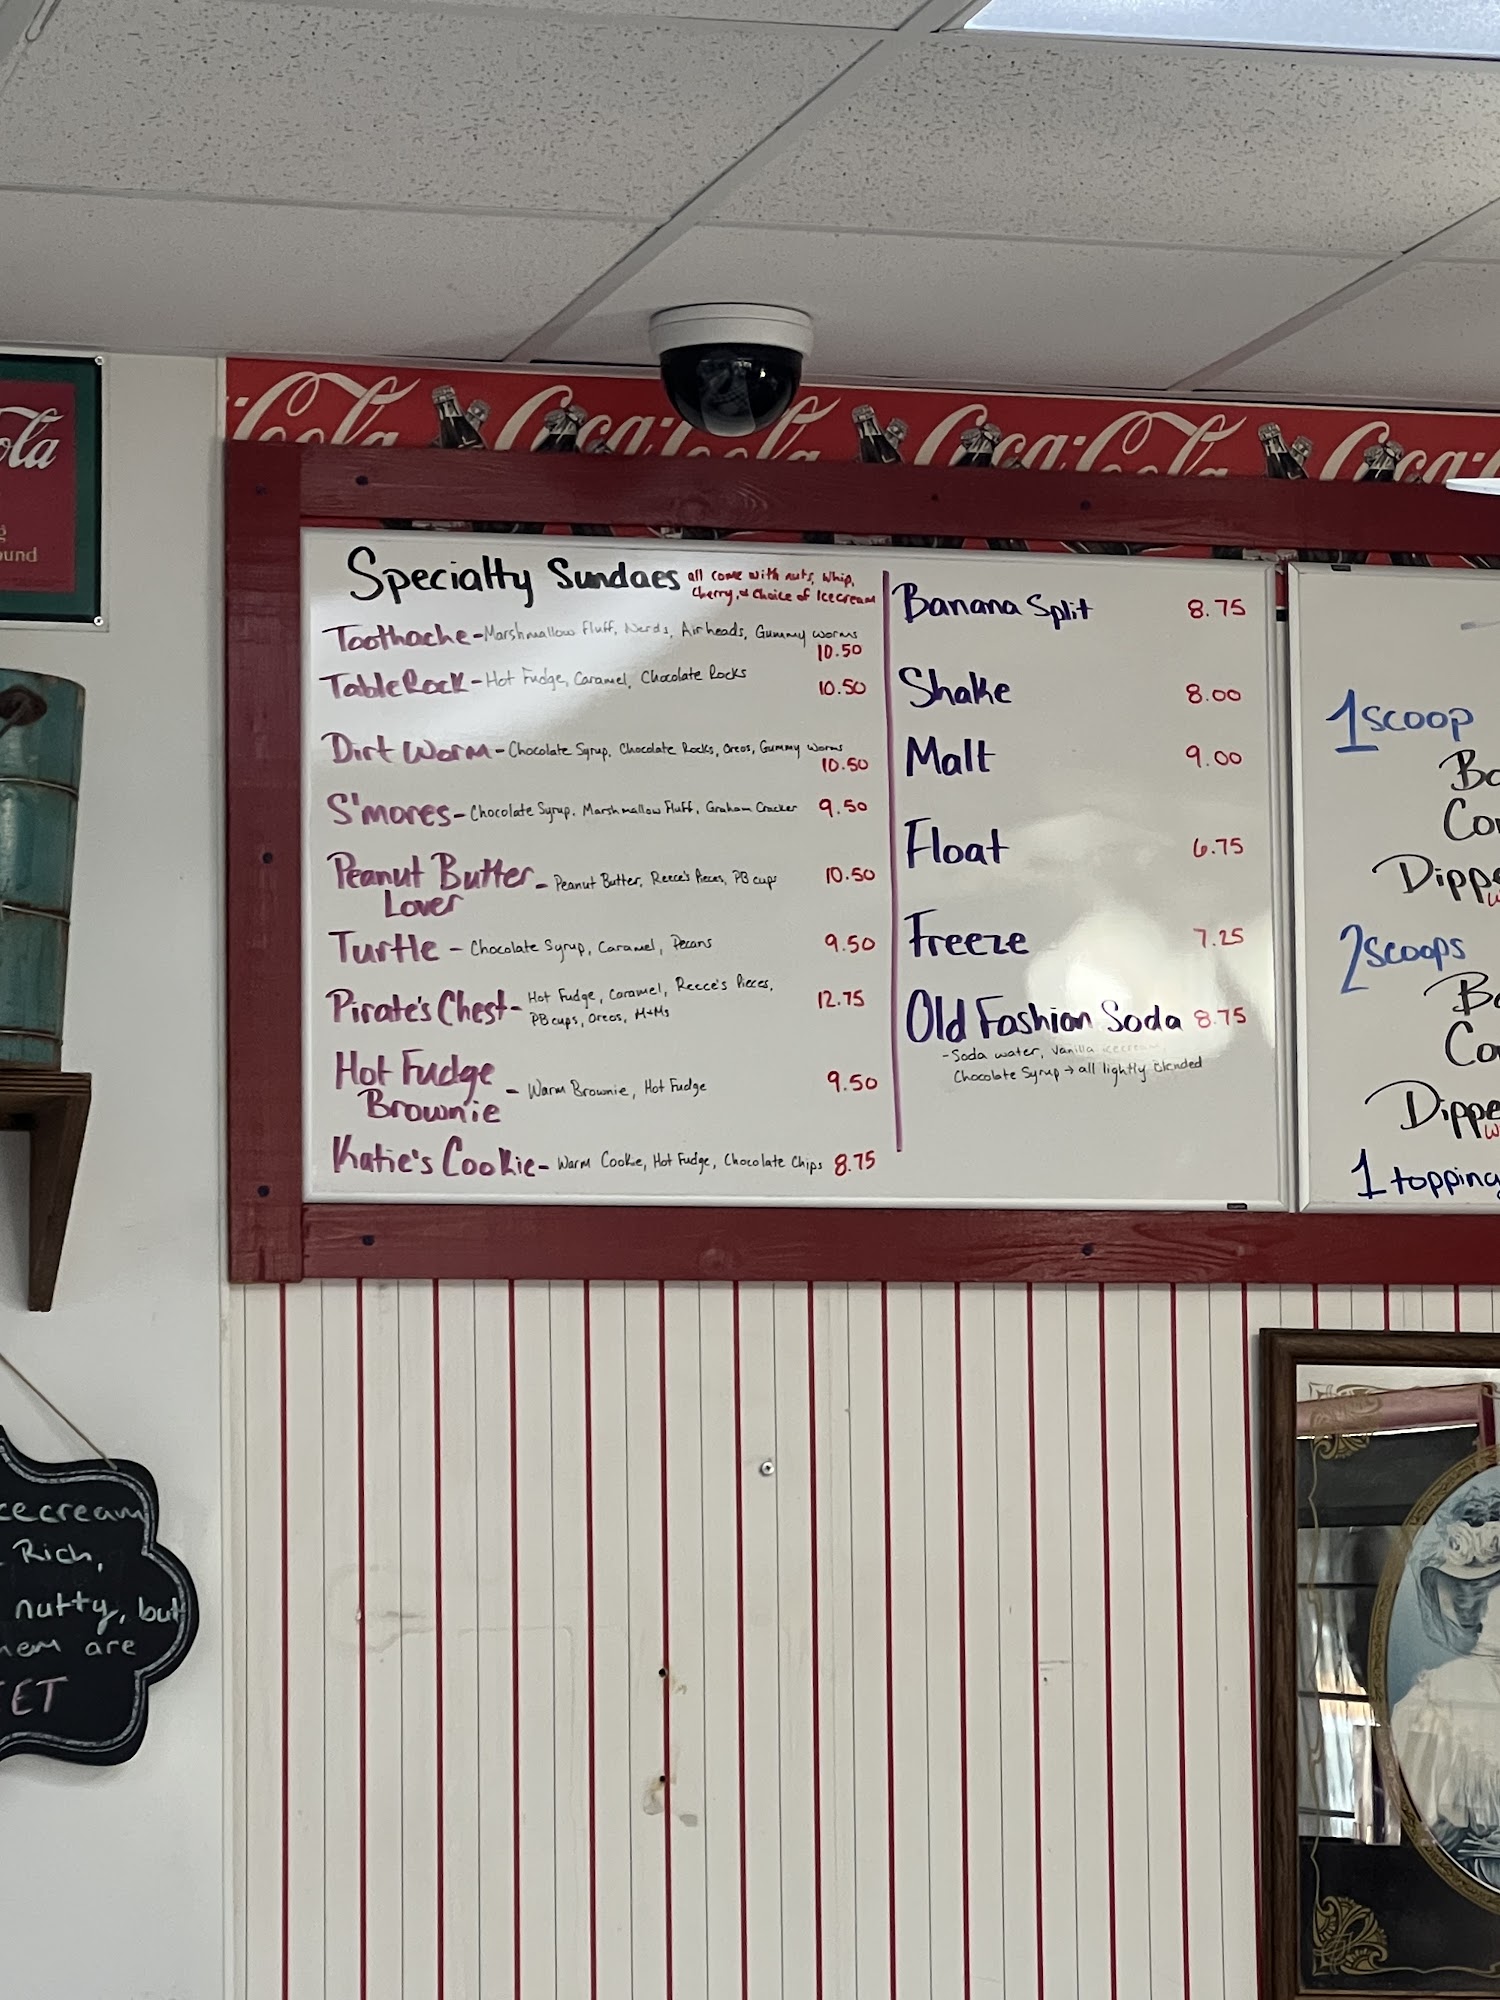 Coca-Cola Coca-Cola Coca-Cola Coca-
Cola
und
Specialty Sundaes all come with nuts, whip,
cherry, & choice of Icecream
Toothache - Marshmallow Fluff, Nerds, Airheads, Gummy worms
10.50
Table Rock - Hot Fudge, Caramel, Chocolate Rocks 10.50
Dirt Worm - Chocolate Syrup, Chocolate Rocks, Oreos, Gummy worms
10.50
S'mores - Chocolate Syrup, Marshmallow Fluff, Graham Cracker 9.50
Peanut Butter - Peanut Butter, Reece's Pieces, PB cups 10.50
Lover
Turtle - Chocolate Syrup, Caramel, Pecans 9.50
Pirate's Chest - Hot Fudge, Caramel, Reece's Pieces, 12.75
PB cups, Oreos, M+Ms
Hot Fudge - Warm Brownie, Hot Fudge 9.50
Brownie
Katie's Cookie - Warm Cookie, Hot Fudge, Chocolate Chips 8.75
Banana Split 8.75
Shake 8.00
Malt 9.00
Float 6.75
Freeze 7.25
Old Fashion Soda 8.75
- Soda water, Vanilla icecream,
Chocolate Syrup → all lightly blended
1 scoop
Co
Dippe
2 scoops
Co
Dippe
1 topping
cecream
Rich,
nutty, but
hem are
EET